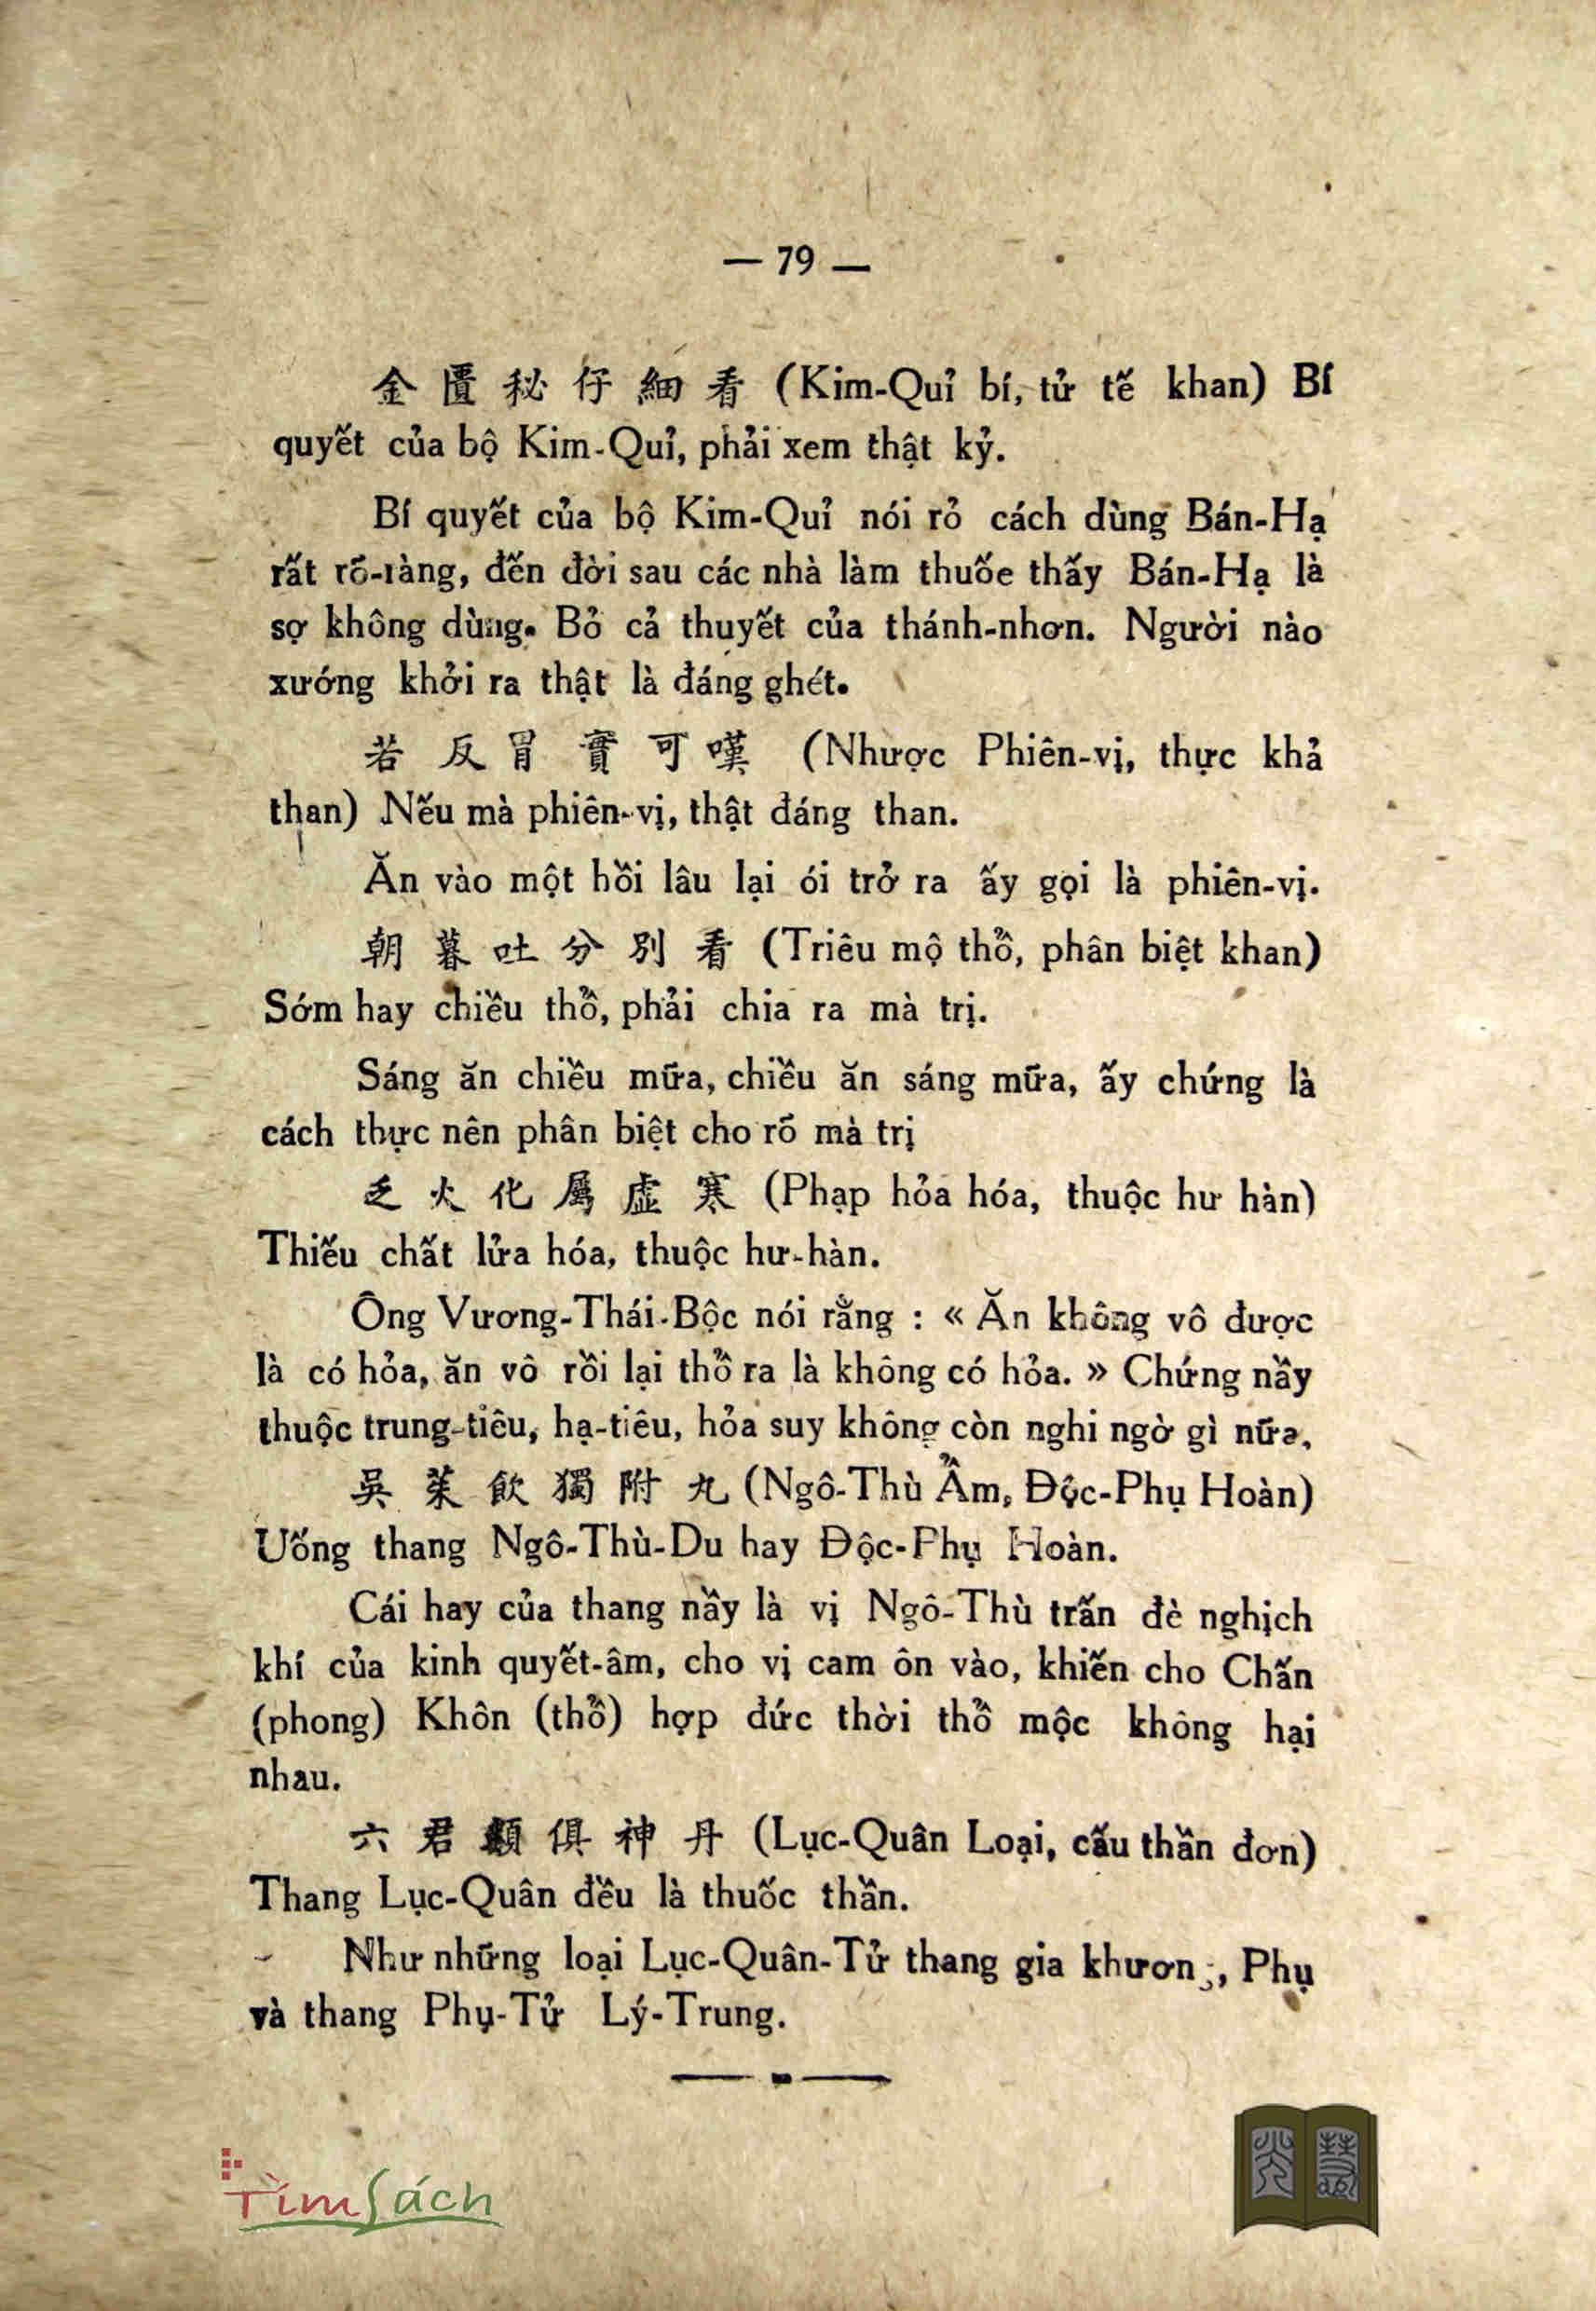 — 79 —
金匱秘仔細看 (Kim-Quỉ bí, tử tế khan) Bí
quyết của bộ Kim-Quỉ, phải xem thật kỷ.
Bí quyết của bộ Kim-Quỉ nói rỏ cách dùng Bán-Hạ
rất rõ-ràng, đến đời sau các nhà làm thuốe thấy Bán-Hạ là
sợ không dùng. Bỏ cả thuyết của thánh-nhơn. Người nào
xướng khởi ra thật là đáng ghét.
若反胃實可嘆 (Nhược Phiên-vị, thực khả
than) Nếu mà phiên-vị, thật đáng than.
Ăn vào một hồi lâu lại ói trở ra ấy gọi là phiên-vị.
朝暮吐分別看 (Triêu mộ thổ, phân biệt khan)
Sớm hay chiều thổ, phải chia ra mà trị.
Sáng ăn chiều mữa, chiều ăn sáng mữa, ấy chứng là
cách thực nên phân biệt cho rõ mà trị
乏火化屬虛寒 (Phạp hỏa hóa, thuộc hư hàn)
Thiếu chất lửa hóa, thuộc hư-hàn.
Ông Vương-Thái-Bộc nói rằng : « Ăn không vô được
là có hỏa, ăn vô rồi lại thổ ra là không có hỏa. » Chứng nầy
thuộc trung-tiêu, hạ-tiêu, hỏa suy không còn nghi ngờ gì nữa.
吳茱飲獨附丸 (Ngô-Thù Ẩm, Độc-Phụ Hoàn)
Uống thang Ngô-Thù-Du hay Độc-Phụ Hoàn.
Cái hay của thang nầy là vị Ngô-Thù trấn đè nghịch
khí của kinh quyết-âm, cho vị cam ôn vào, khiến cho Chấn
(phong) Khôn (thổ) hợp đức thời thổ mộc không hại
nhau.
六君類俱神丹 (Lục-Quân Loại, cấu thần đơn)
Thang Lục-Quân đều là thuốc thần.
Như những loại Lục-Quân-Tử thang gia khương, Phụ
và thang Phụ-Tử Lý-Trung.
TìmSách